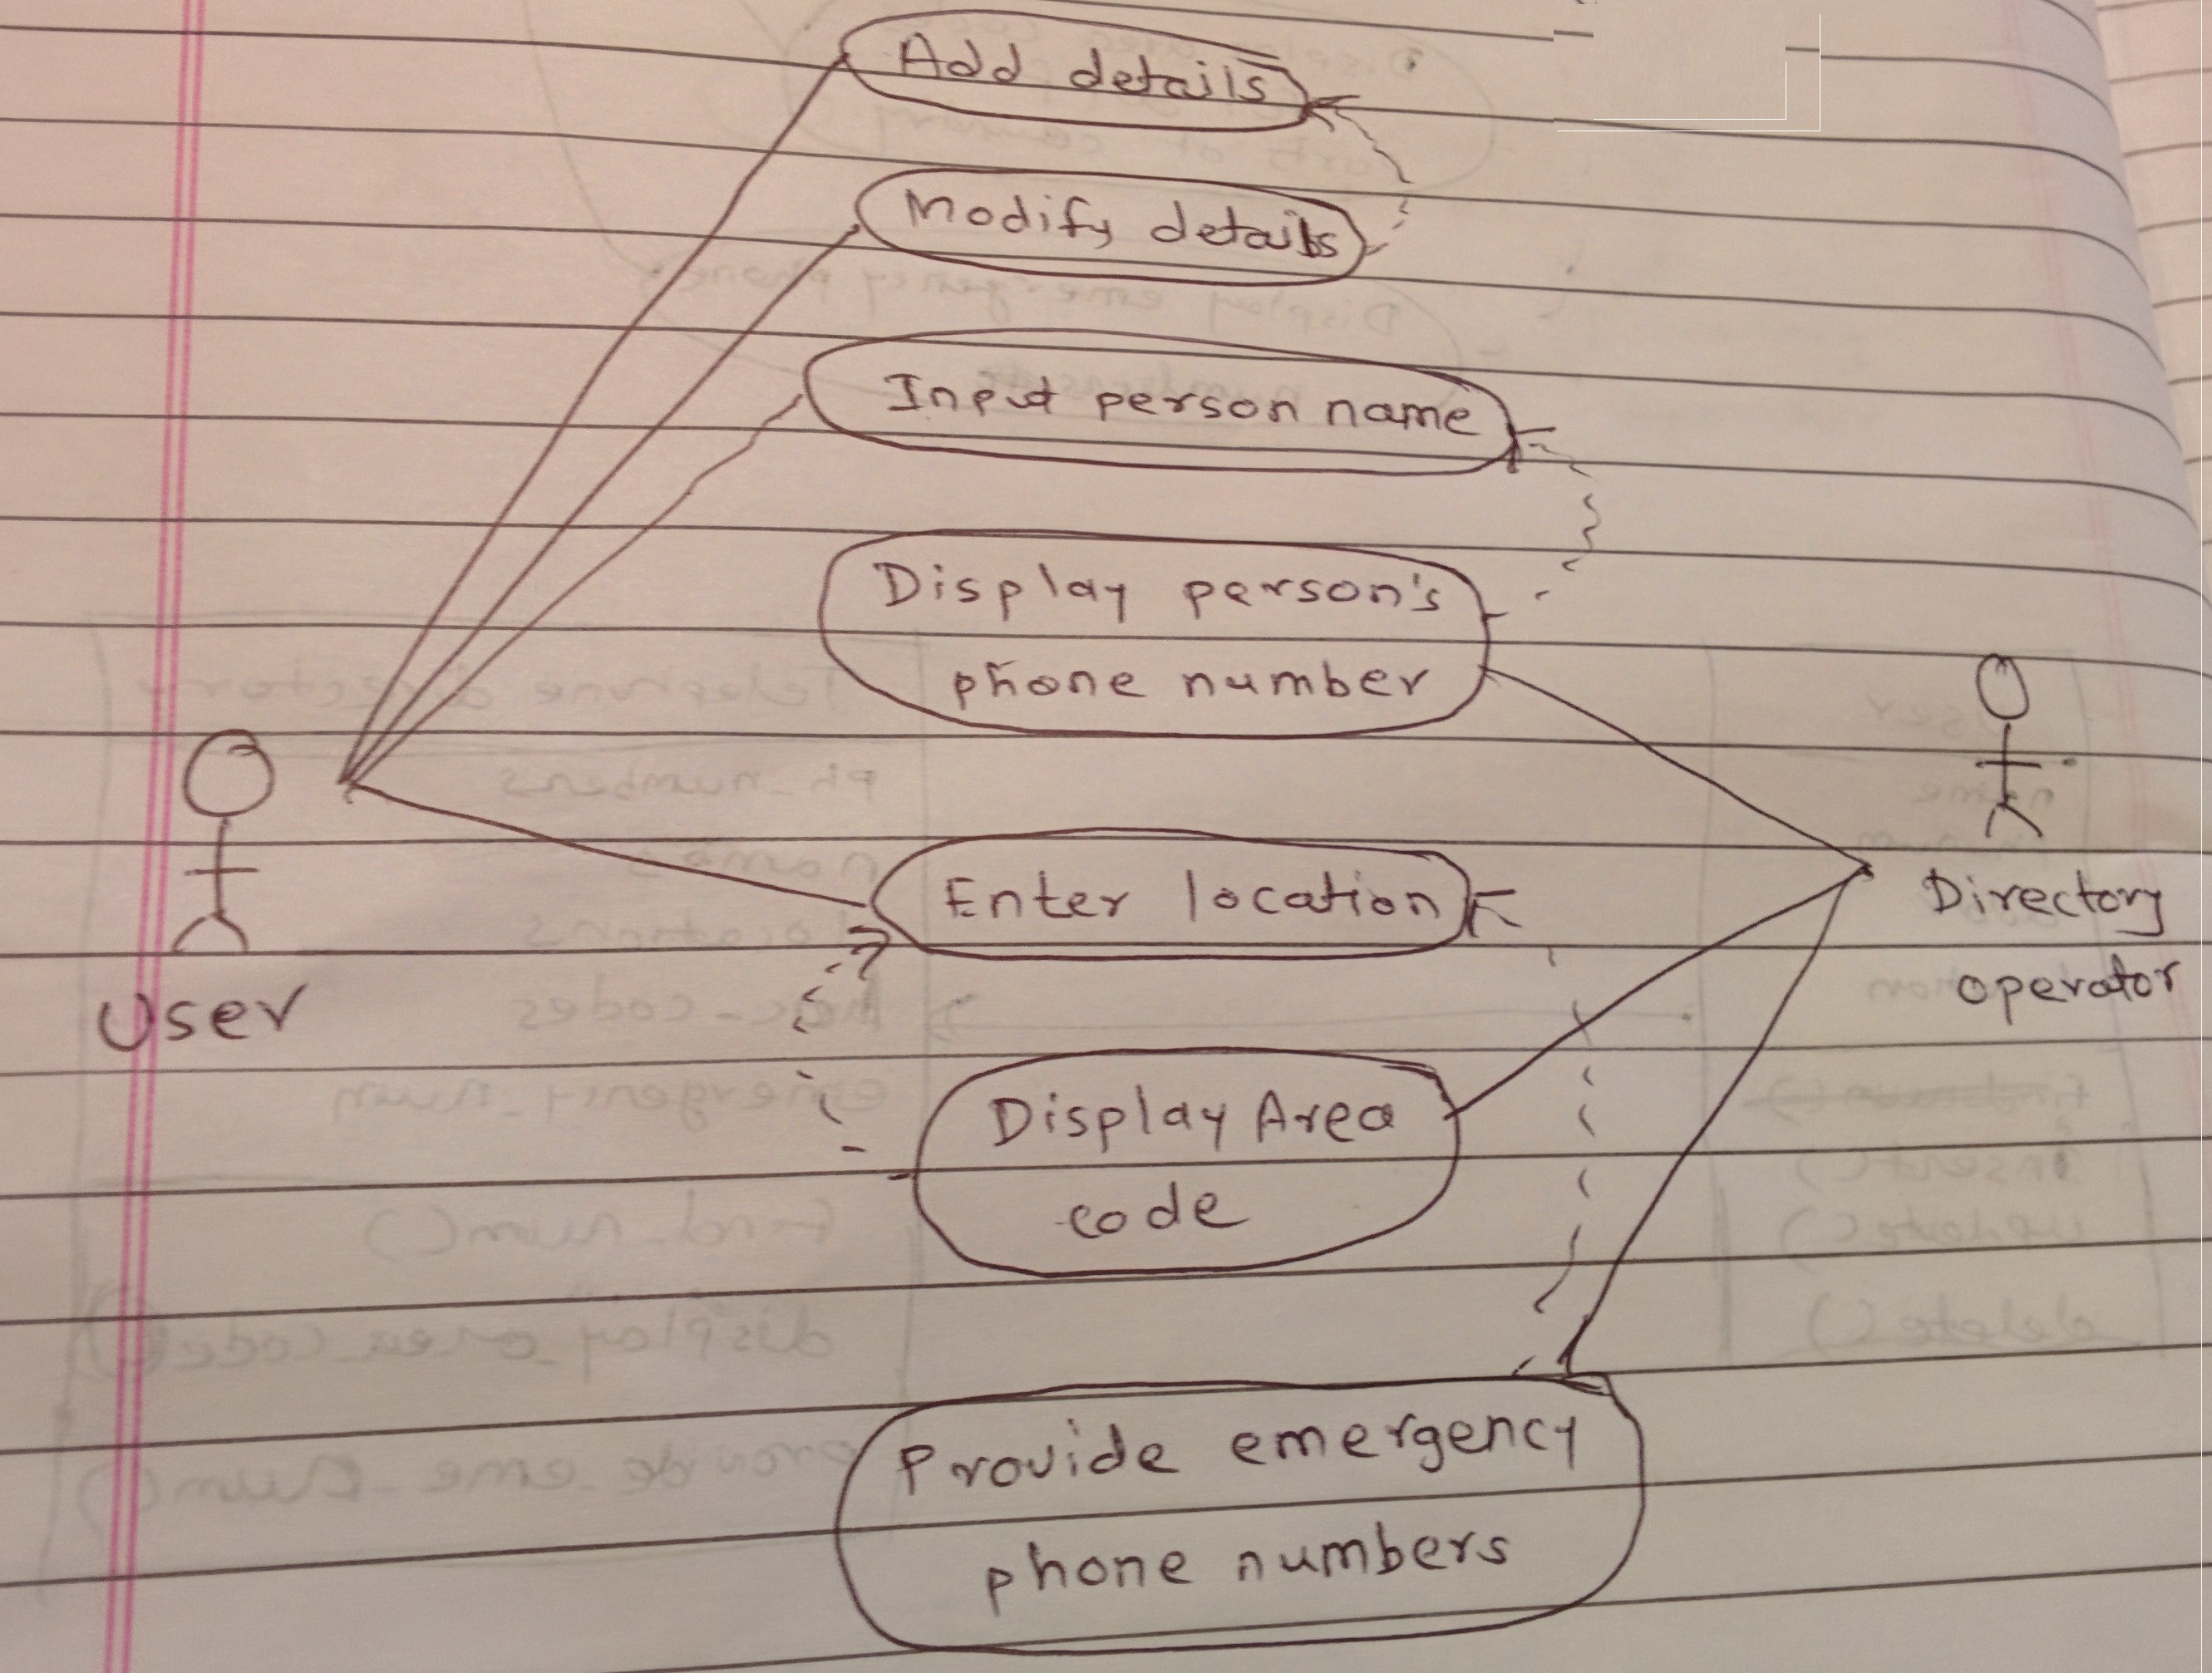 Add details
Modify details
Input person name
Display person's
phone number
User
Enter location
Directory
operator
Display Area
code
Provide emergency
phone numbers